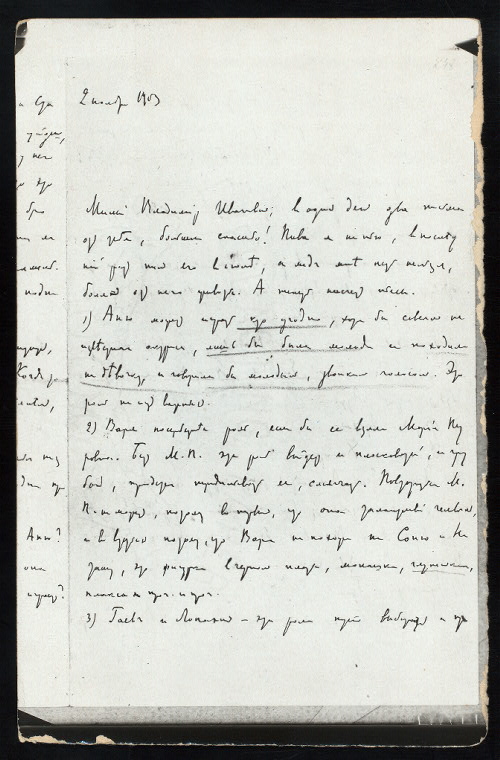 2 ноября 1903
Милый Владимир Иванович, в один день два письма
от тебя, большое спасибо! Пива я не пью, в послед
ний раз пил его в июле, а меда мне нельзя есть,
болит от него живот. А теперь насчет пьесы.
1) Аню может играть кто угодно, хотя бы совсем не
известная актриса, лишь бы была молода и походила
на девочку, и говорила бы молодым, звонким голосом. Эта
роль не из важных.
2) Варя посерьезнее роль, если бы ее взяла Мария Пет
ровна. Без М. П. эта роль выйдет и плосковатой, и гру
бой, придется переделывать ее, смягчать. Повториться М.
П. не может, потому, во-первых, что она талантливый человек,
и во-вторых, потому, что Варя не похожа на Соню и На
ташу, это фигура в черном платье, монашка, глупенькая,
плакса и проч. и проч.
3) Гаев и Лопахин — эти роли пусть выбирает и
Аню?
она